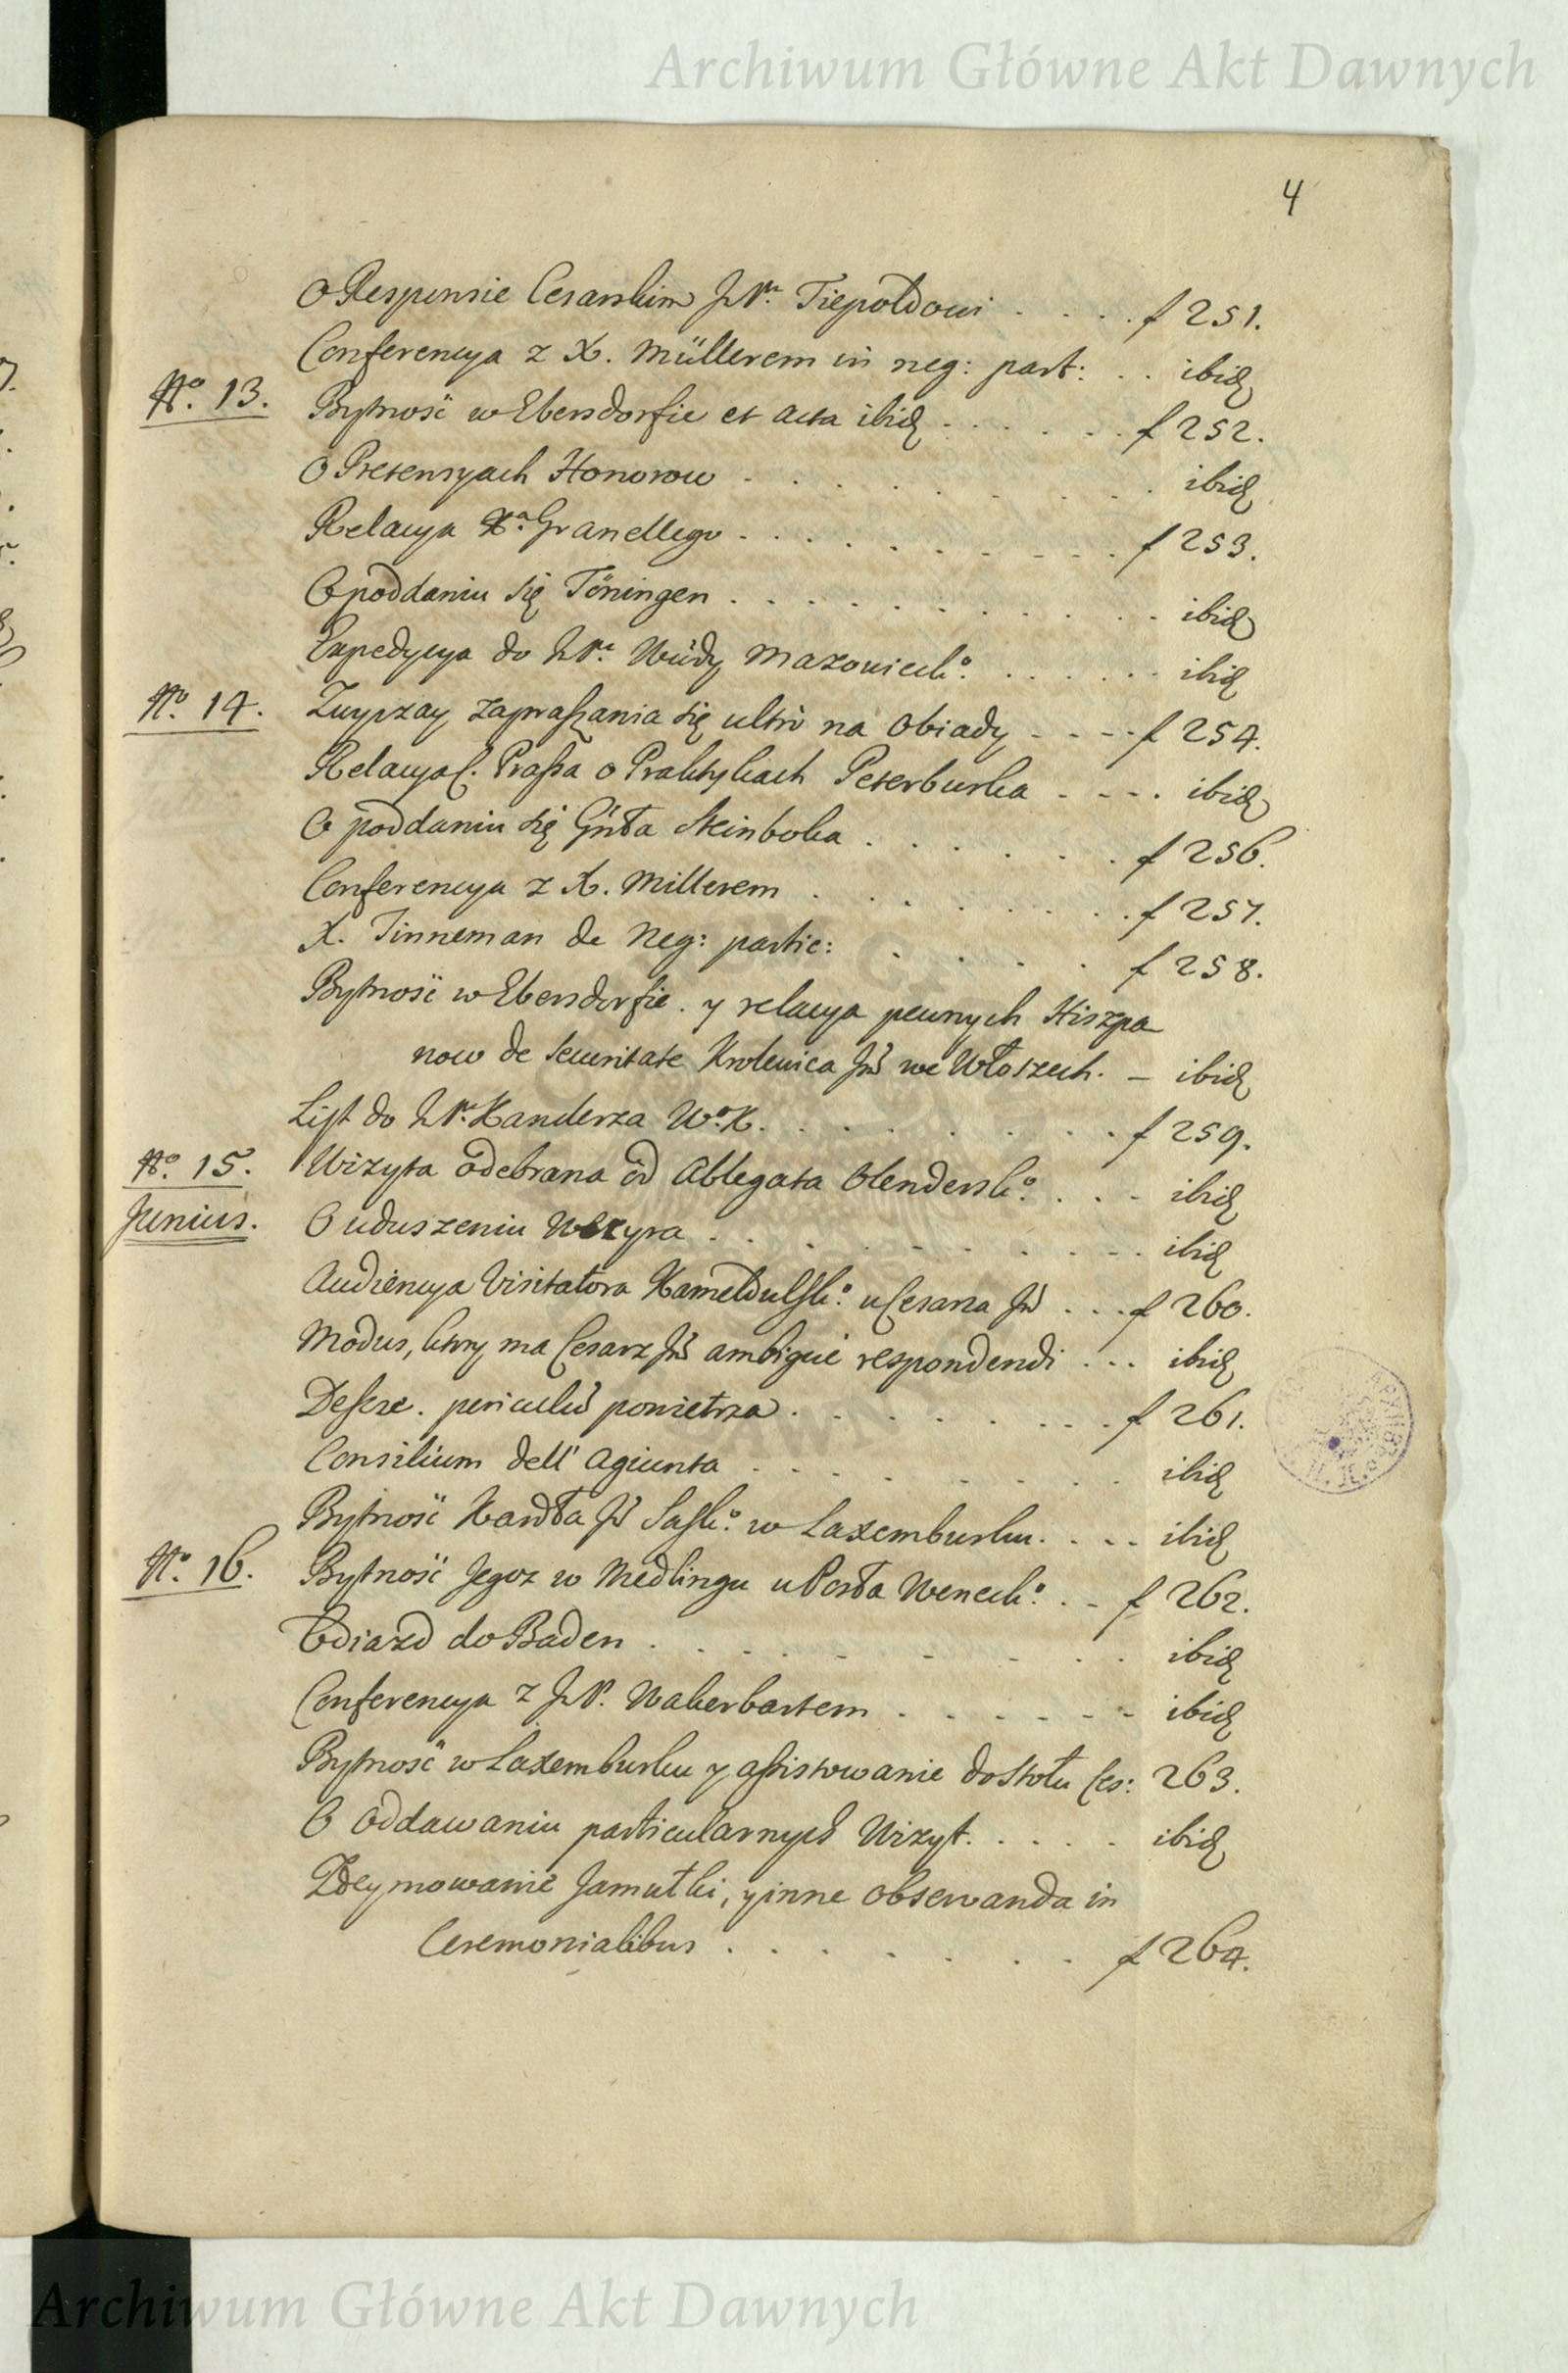 Archiwum Główne Akt Dawnych
4
O Responsie Cesarskim JPn Tiepoldowi . . . . f 251.
Conferencya z X. Müllerem in neg: part: . . ibid
No. 13. Bytność w Ebersdorfie et acta ibid . . . . . . f 252.
O Pretensyach Honorow . . . . . . . . ibid
Relacya Xa. Grandlego . . . . . . . . . . f 253.
O poddaniu się Töningen . . . . . . . . . . ibid
Expedycya do JPa. Wdy Mazowieckio. . . . . . . ibid
No. 14. Zwyczay zapraszania się ultrò na Obiady - - - - f 254.
Relacya C. Prassa o Praktykach Peterburka . - - . ibid
O poddaniu się Gnła Steinboka . . . . . . f 256.
Conferencya z X. Millerem . . . . . . . . f 257.
X. Tinneman de Neg: partic: . . . . f 258.
Bytność w Ebersdorfie . y relacya pewnych Hiszpa
now de securitate Krolewica Jm we Włoszech. - ibid
List do JPa. Kanclerza Wo. K. . . . . . . . . f 259.
No. 15. Wizyta odebrana od Ablegata Olenderskio. . . - ibid
Junius. O uduszeniu Wezyra . . . . . . . . . . ibid
Audiencya Visitatora Kamedulsko. u Cesarza Jm . . . f 260.
Modus, ktory ma Cesarz Jm ambigué respondendi . . . ibid
periculum powietrza . . . . . . . . . f 261.
Consilium dell' Agiunta . . . . . . . . ibid
Bytność Kardła Jm Saskio. w Laxemburku. . . . . ibid
No. 16. Bytność Jegoz w Medlingu u Posła Weneckio. . - f 262.
Odiazd do Baden . . . . . . . . . ibid
Conferencya z JP. Wakerbartem . . . . . - - ibid
Bytność w Laxemburku y assistowanie do stołu Ces: 263.
O oddawaniu particularnych Wizyt. . . . . . ibid
Zdeymowanie Jamułki, y inne observanda in
Ceremonialibus . . . . . . . f 264.
Archiwum Główne Akt Dawnych